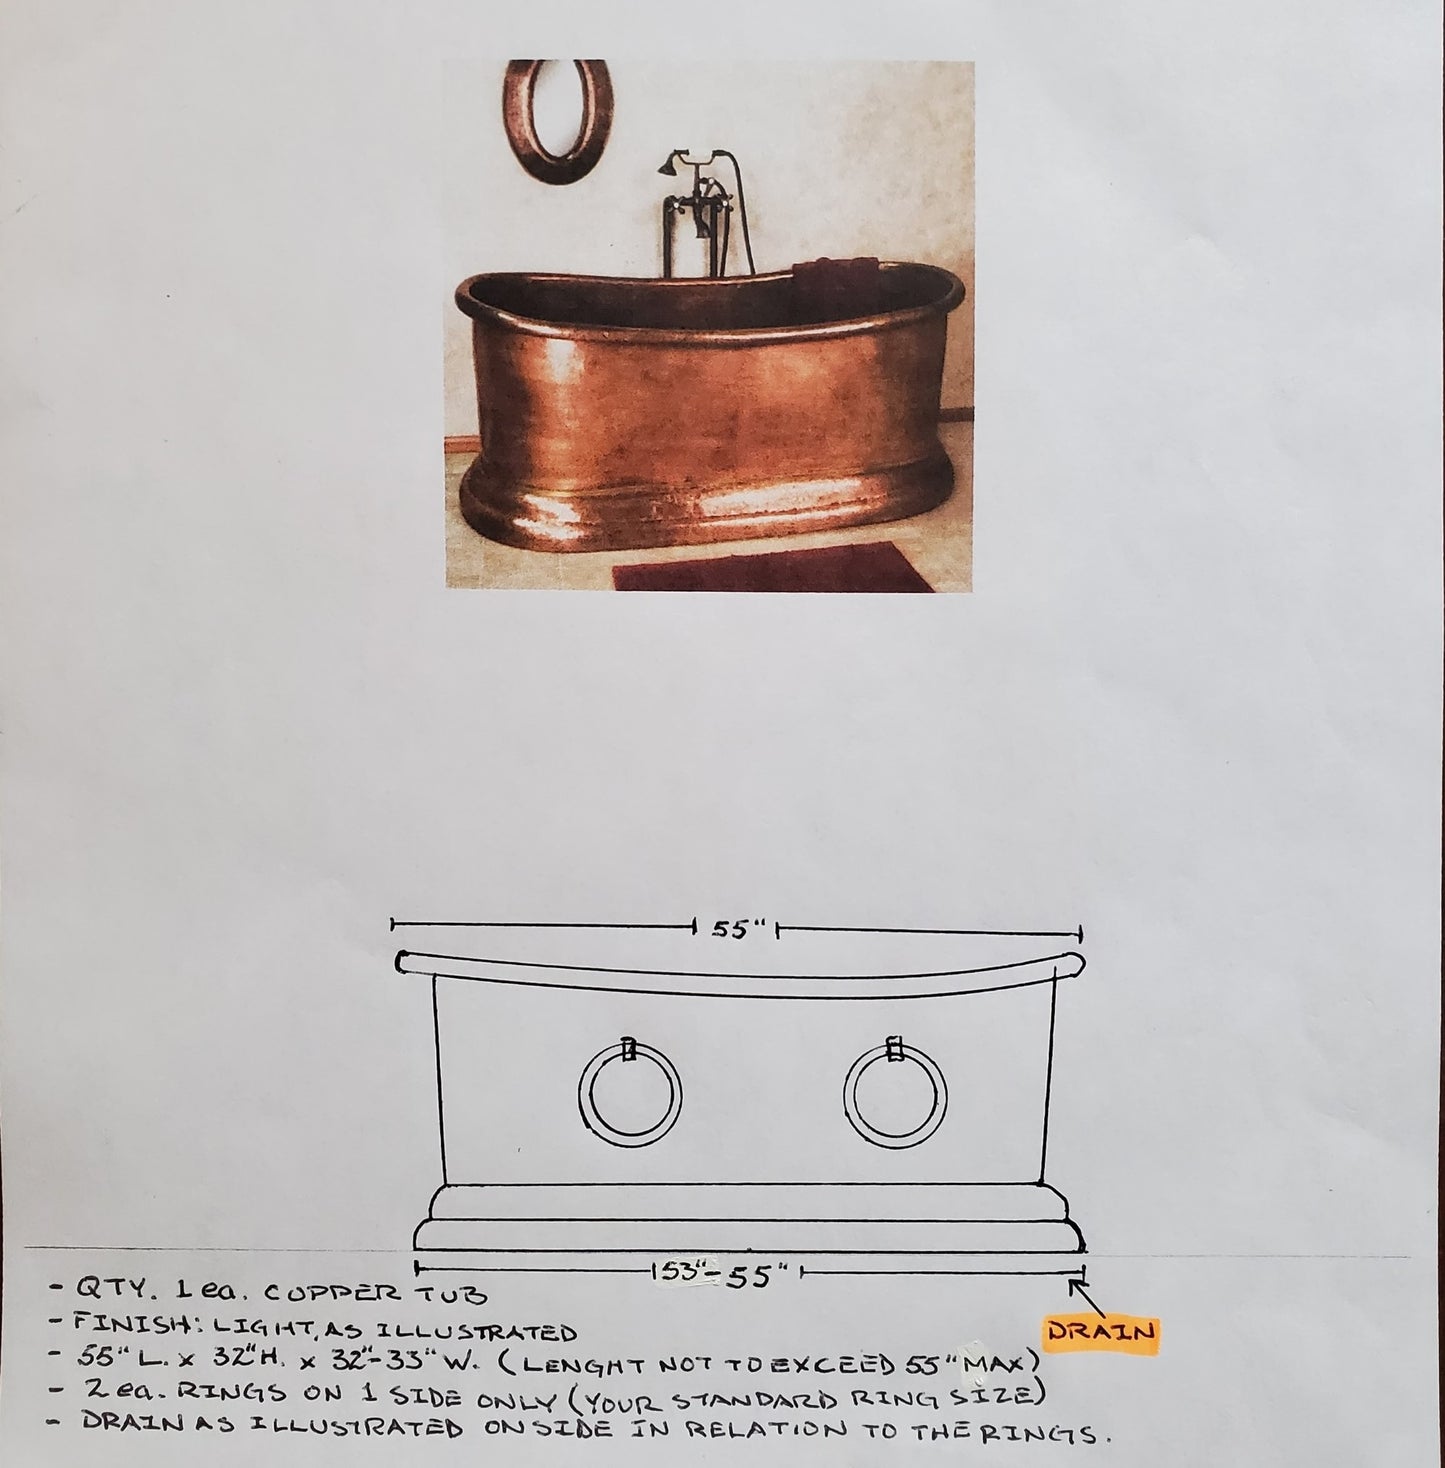 55"
53"-55"
DRAIN
- QTY. 1 ea. COPPER TUB
- FINISH: LIGHT, AS ILLUSTRATED
- 55" L. x 32" H. x 32"-33" W. (LENGHT NOT TO EXCEED 55" MAX)
- 2 ea. RINGS ON 1 SIDE ONLY (YOUR STANDARD RING SIZE)
- DRAIN AS ILLUSTRATED ON SIDE IN RELATION TO THE RINGS.